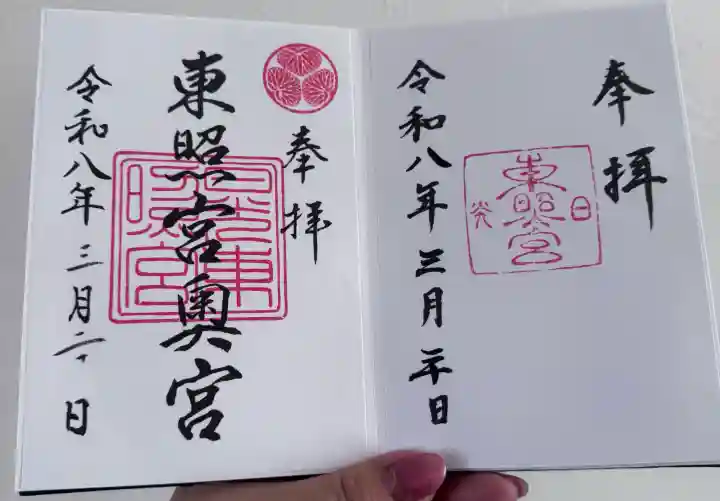 奉拝
日光
東照宮
令和八年三月二十日
奉拝
東照宮奥宮
日光東
照宮
令和八年三月二十日